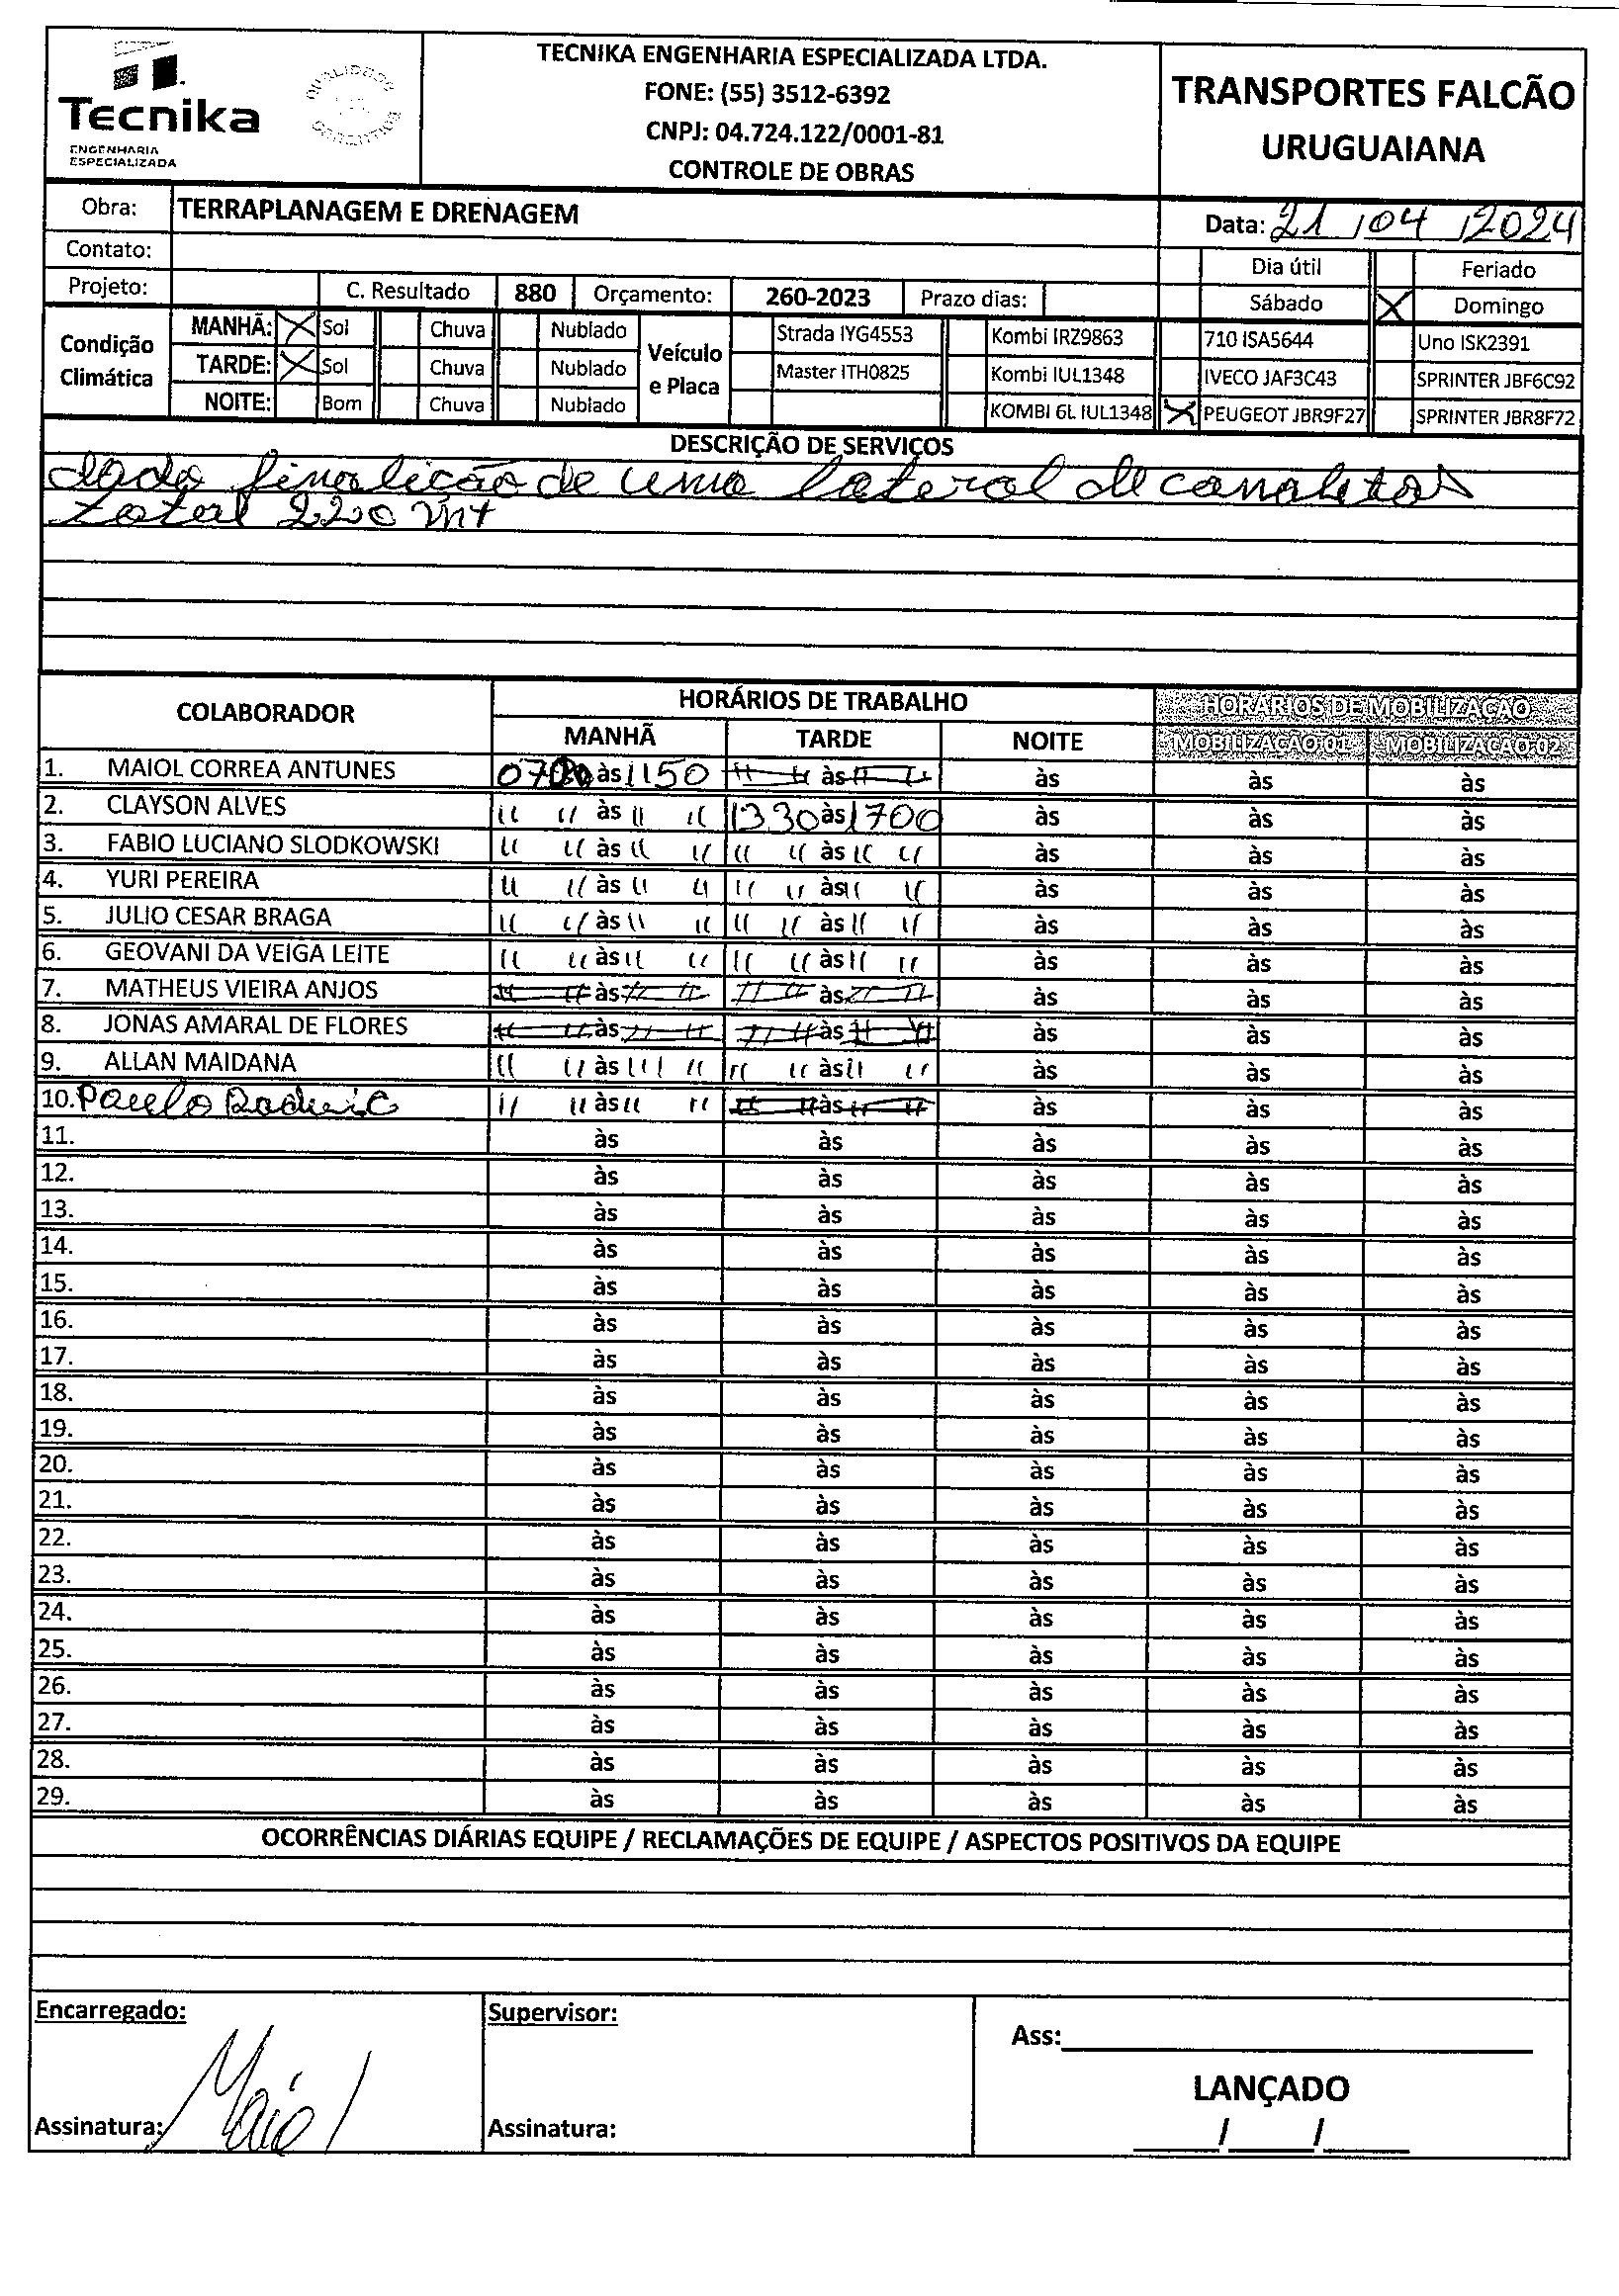 Tecnika
ENGENHARIA
ESPECIALIZADA
TECNIKA ENGENHARIA ESPECIALIZADA LTDA.
FONE: (55) 3512-6392
CNPJ: 04.724.122/0001-81
CONTROLE DE OBRAS
TRANSPORTES FALCÃO
URUGUAIANA
Obra: TERRAPLANAGEM E DRENAGEM
Data: 21/04/2024
Contato:
Dia útil Feriado
Projeto: C. Resultado 880 Orçamento: 260-2023 Prazo dias:
Sábado X Domingo
Condição Climática
MANHÃ: X Sol Chuva Nublado
TARDE: X Sol Chuva Nublado
NOITE: Bom Chuva Nublado
Veículo e Placa
Strada IYG4553 Kombi IRZ9863 710 ISA5644 Uno ISK2391
Master ITH0825 Kombi IUL1348 IVECO JAF3C43 SPRINTER JBF6C92
KOMBI 6L IUL1348 X PEUGEOT JBR9F27 SPRINTER JBR8F72
DESCRIÇÃO DE SERVIÇOS
finalicão de uma lateral de canaletas
total 220 mt
COLABORADOR HORÁRIOS DE TRABALHO HORÁRIOS DE MOBILIZAÇÃO
MANHÃ TARDE NOITE MOBILIZAÇÃO 01 MOBILIZAÇÃO 02
1. MAIOL CORREA ANTUNES 0700 às 1150 " " às " " às às às
2. CLAYSON ALVES " " às " " 1330 às 1700 às às às
3. FABIO LUCIANO SLODKOWSKI " " às " " " " às " " às às às
4. YURI PEREIRA " " às " " " " às " " às às às
5. JULIO CESAR BRAGA " " às " " " " às " " às às às
6. GEOVANI DA VEIGA LEITE " " às " " " " às " " às às às
7. MATHEUS VIEIRA ANJOS " " às " " " " às " " às às às
8. JONAS AMARAL DE FLORES " " às " " " " às " " às às às
9. ALLAN MAIDANA " " às " " " " às " " às às às
10. Paulo " " às " " " " às " " às às às
11. às às às às às
12. às às às às às
13. às às às às às
14. às às às às às
15. às às às às às
16. às às às às às
17. às às às às às
18. às às às às às
19. às às às às às
20. às às às às às
21. às às às às às
22. às às às às às
23. às às às às às
24. às às às às às
25às às às às às
26às às às às às
27. às às às às às
28. às às às às às
29às às às às às
OCORRÊNCIAS DIÁRIAS EQUIPE / RECLAMAÇÕES DE EQUIPE / ASPECTOS POSITIVOS DA EQUIPE
Encarregado: Supervisor:
Ass:
LANÇADO
Assinatura: Maiol Assinatura:
/ /